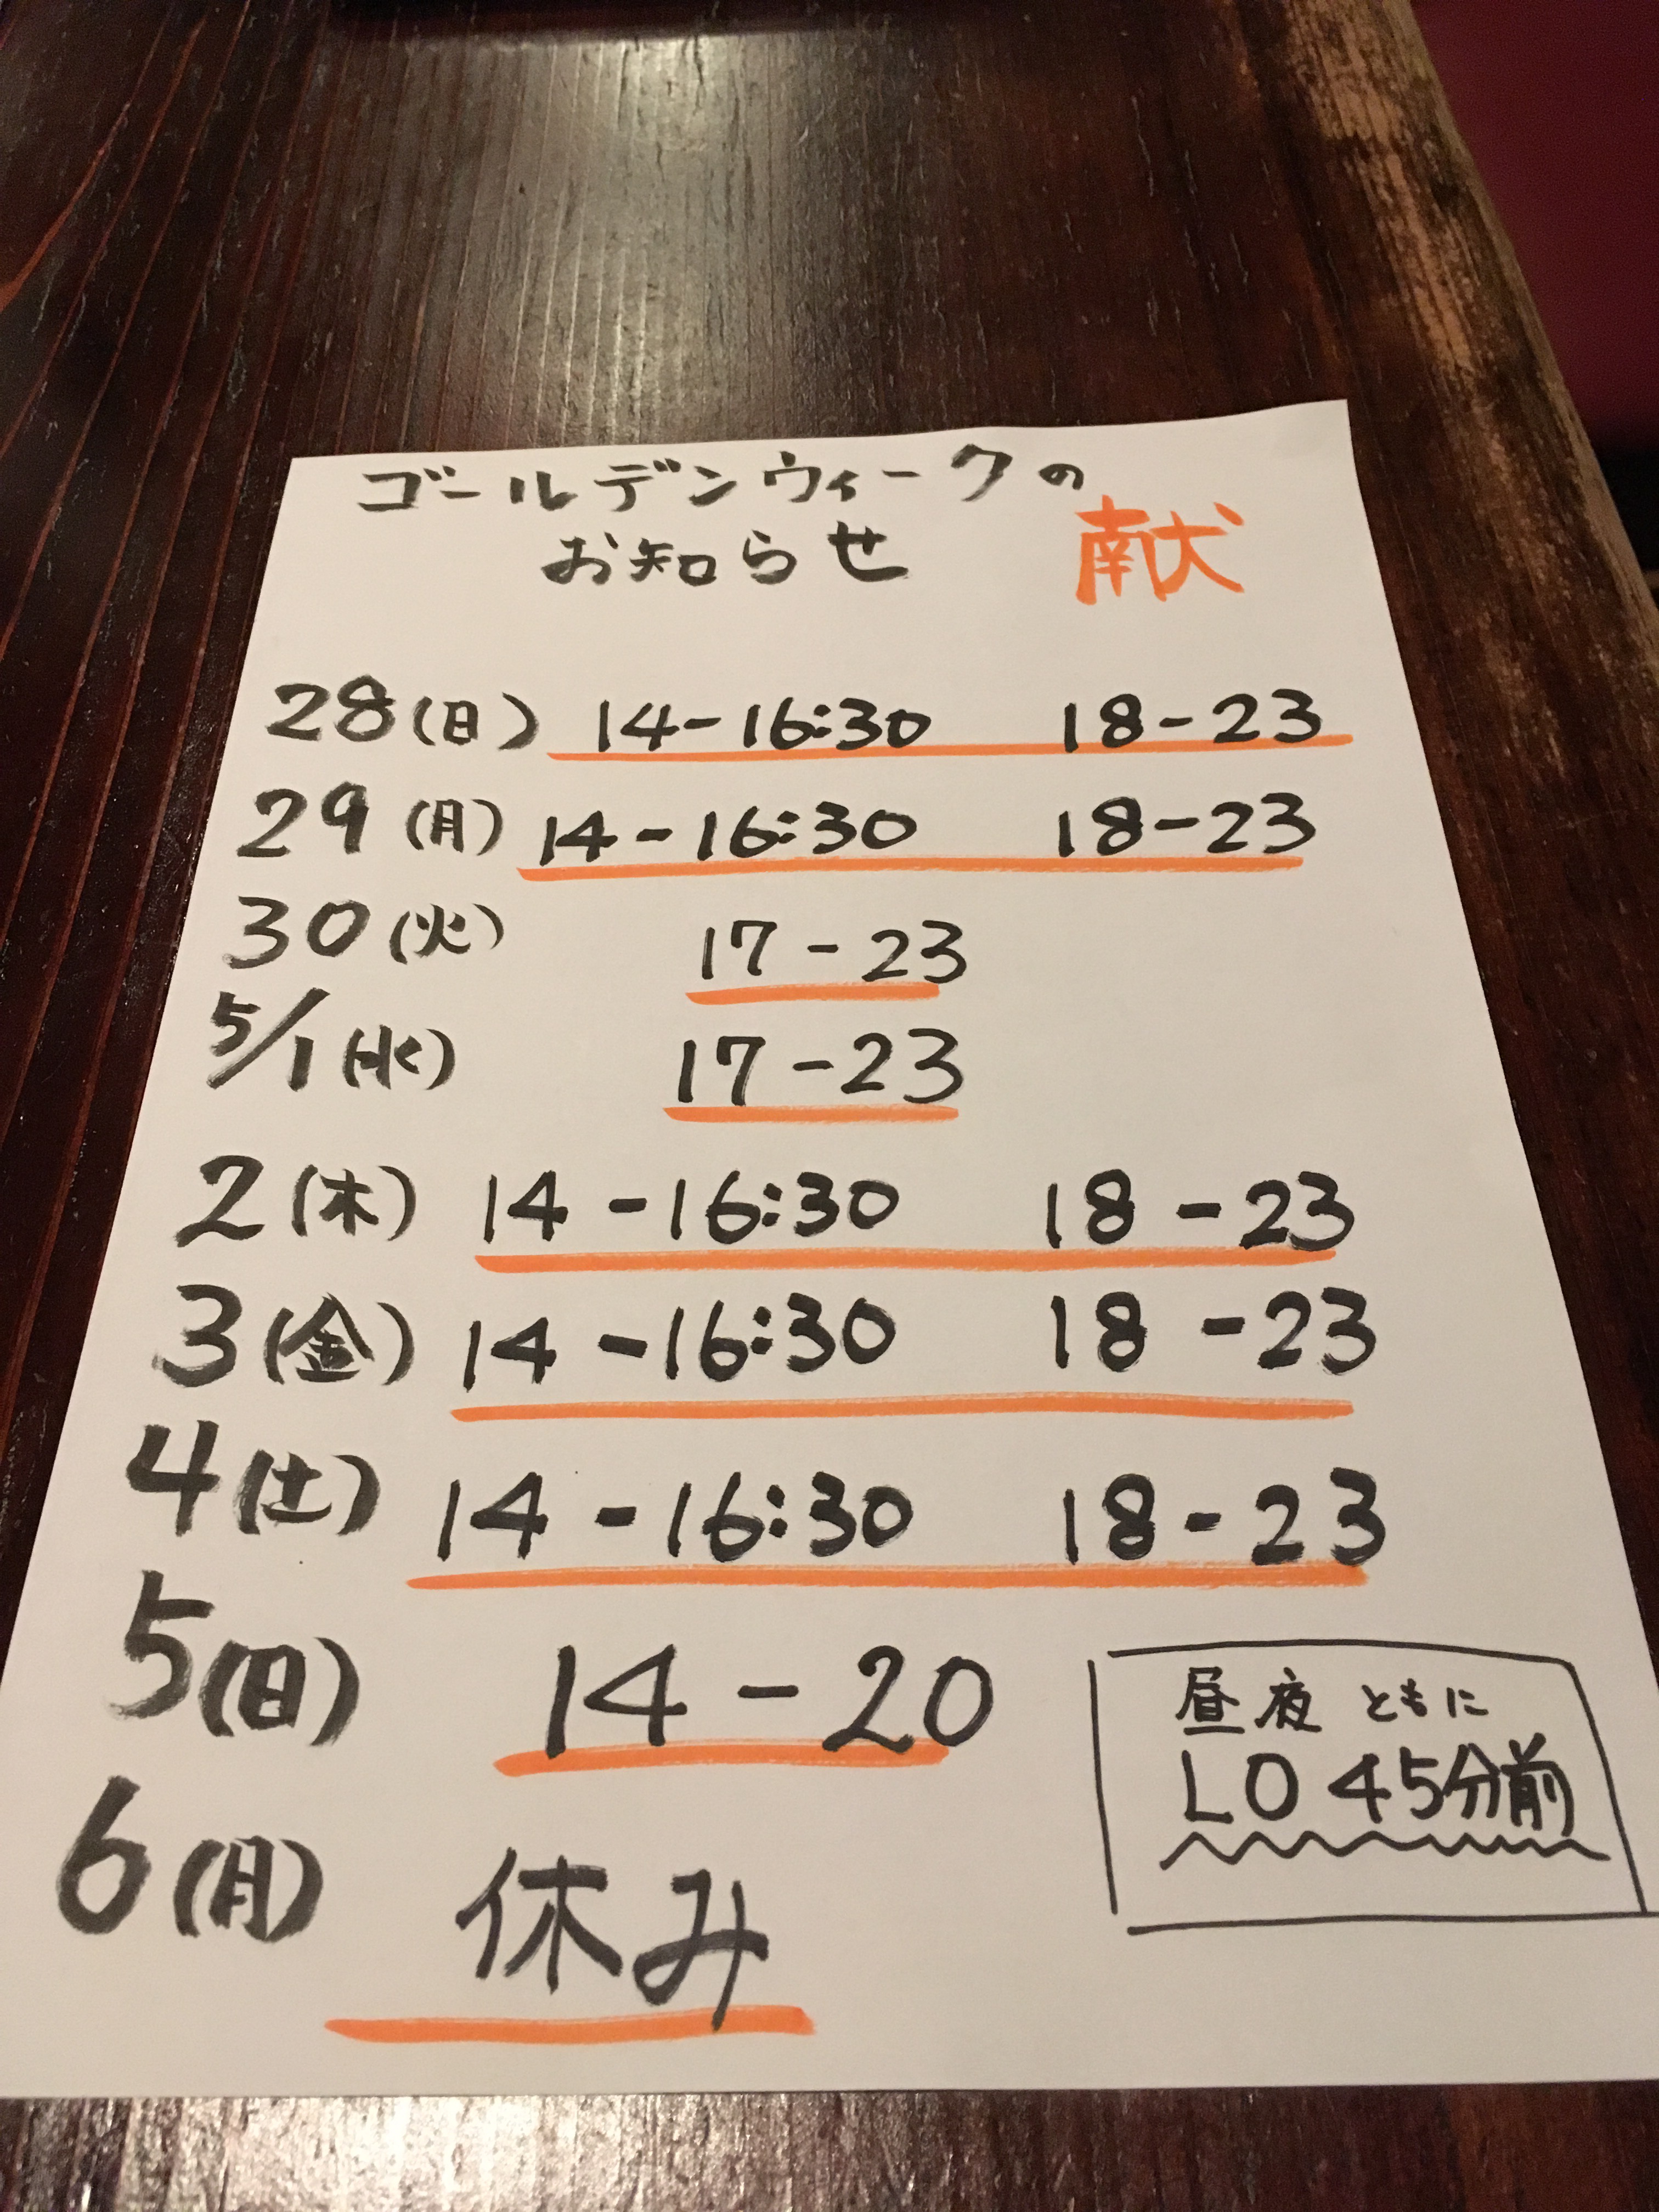 ゴールデンウィークの
お知らせ
献
28(日) 14-16:30 18-23
29(月) 14-16:30 18-23
30(火) 17-23
5/1(水) 17-23
2(木) 14-16:30 18-23
3(金) 14-16:30 18-23
4(土) 14-16:30 18-23
5(日) 14-20
6(月) 休み
昼夜ともに
LO 45分前